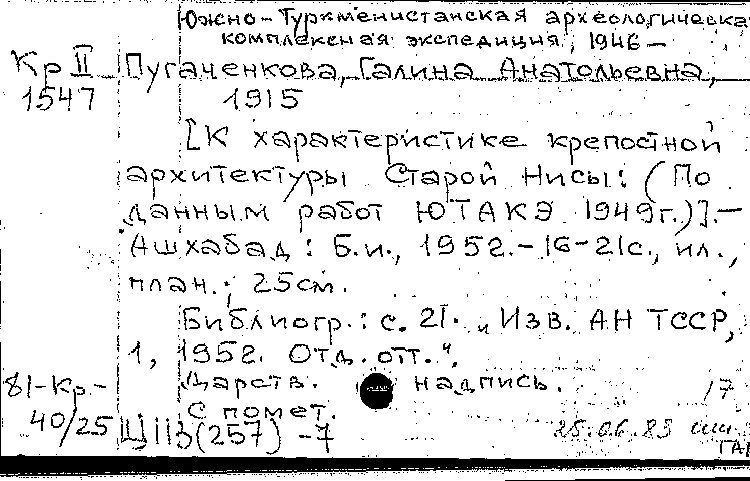 Южно-Туркменистанская археологическа
комплексная экспедиция, 1946 –
Кр II Пугаченкова, Галина Анатольевна,
1547 1915
[К характеристике крепостной
архитектуры Старой Нисы: (По
данным работ ЮТАКЭ 1949г.)].–
Ашхабад: Б.и., 1952.–16–21с., ил.,
план.; 25см.
Библиогр.: с. 21. „Изв. АН ТССР,
1, 1952. Отд. отт.“.
81-Кр- Дарств. надпись. 17
40/25 С помет.
ЦIIЗ(257) -7 25.06.83
ГАР